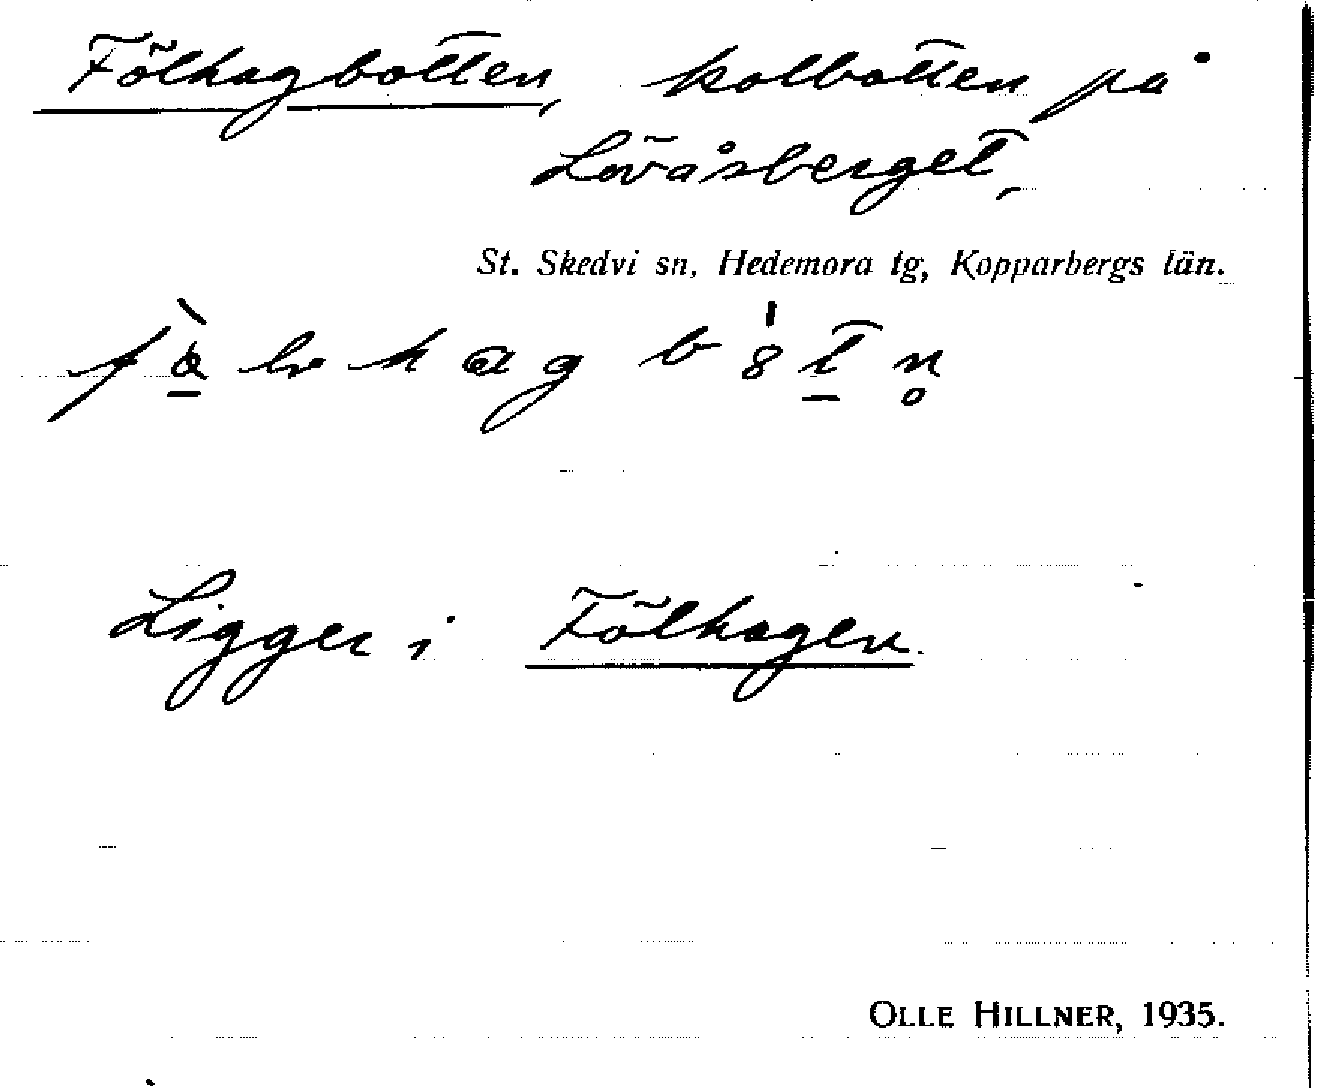 Fölhagbotten, kolbotten på
Lövåsberget,
St. Skedvi sn, Hedemora tg, Kopparbergs län.
Ligger i Fölhagen.
OLLE HILLNER, 1935.